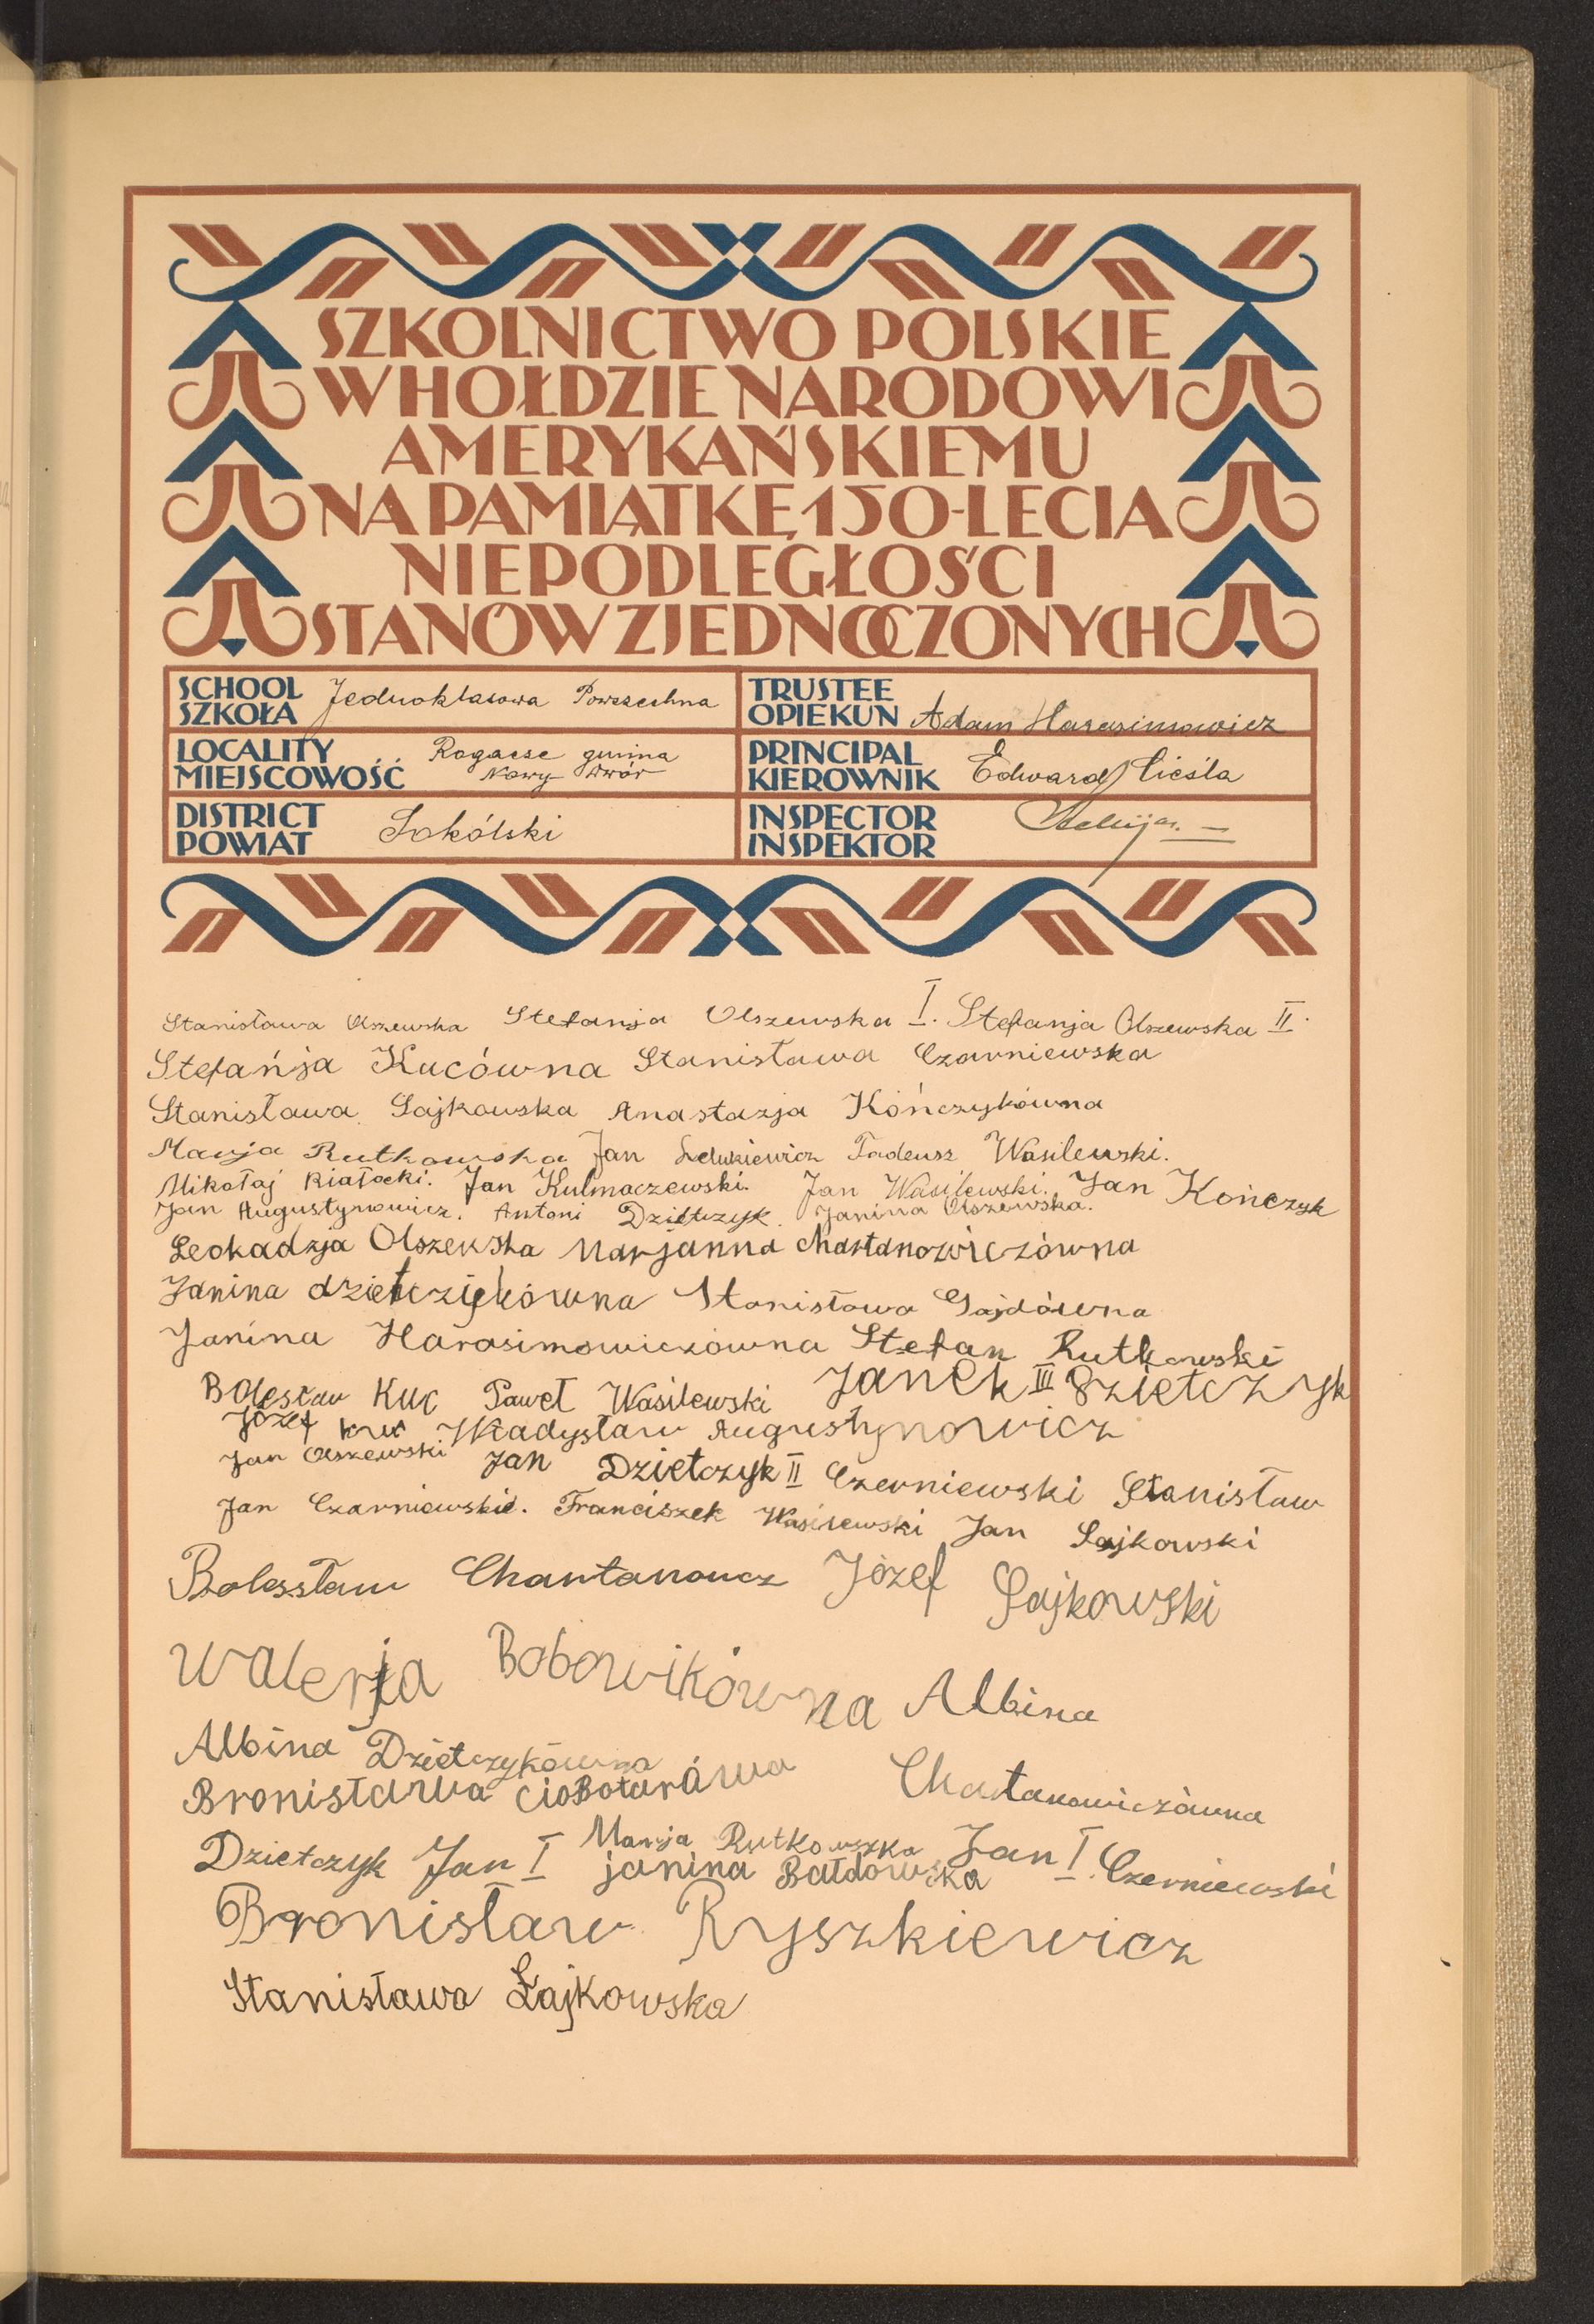 SZKOLNICTWO POLSKIE
W HOŁDZIE NARODOWI
AMERYKAŃSKIEMU
NA PAMIĄTKĘ 150-LECIA
NIEPODLEGŁOŚCI
STANÓW ZJEDNOCZONYCH
SCHOOL
SZKOŁA Jednoklasowa Powszechna
TRUSTEE
OPIEKUN Adam Harasimowicz
LOCALITY
MIEJSCOWOŚĆ Rogacse gmina
Nowy Dwór
PRINCIPAL
KIEROWNIK Edward Cieśla
DISTRICT
POWIAT Sokólski
INSPECTOR
INSPEKTOR
Stanisława Olszewska Stefanja Olszewska I. Stefanja Olszewska II.
Stefańja Kucówna Stanisława Czarniewska
Stanisława Sajkowska Anastazja Kończykówna
Marja Rutkowska Jan Tadeusz Wasilewski.
Mikołaj Białocki. Jan Kulmaczewski. Jan Wasilewski. Jan Kończyk
Jan Augustynowicz. Antoni Dzietczyk. Janina Olszewska.
Leokadzja Olszewska Marjanna Chartanowiczówna
Janina dzietczykówna Stanisława Gajdówna
Janina Harasimowiczówna Stefan Rutkowski
Bolesław Kuc Paweł Wasilewski Janek III Dzietczyk
Józef kuc Władysław Augustynowicz
Jan Olszewski Jan Dzietczyk II Czerniewski Stanisław
Jan Czarniewski. Franciszek Wasilewski Jan Sajkowski
Bolesław Chartanowicz Józef Sajkowski
Walerja Bobowikówna Albina
Albina Dzietczykówna
Bronisława Chartanowiczówna
Dzietczyk Jan I Marja Rutkowszka Jan I Czerniewski
janina Bałdowska
Bronisław Ryszkiewicz
Stanisława Łajkowska